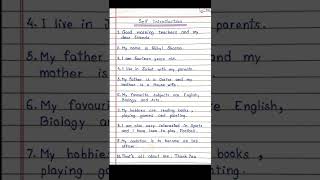 Self Introduction
1. Good morning teachers and my
dear friends.
2. My name is Rahul Sharma.
3. I am fourteen years old.
4. I live in with my parents.
5. My father is a Doctor and my
mother is a House wife.
6. My favourite subjects are English,
Biology and Arts.
7. My hobbies are reading books,
playing games and painting.
8. I am also very interested in Sports
and I have love to play Football.
9. My ambition is to become an IAS
officer.
10. That's all about me. Thank You
4. I live in
parents.
5. My father
and my
mother is
6. My favou
are English,
Biology
7. My hobbie
books,
playing